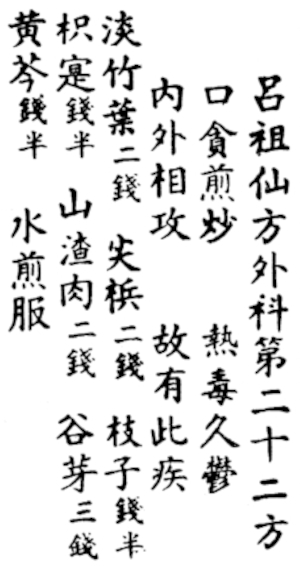 呂祖仙方外科第二十二方
口貪煎炒　熱毒久鬱
內外相攻　故有此疾
淡竹葉二錢　尖梹二錢　枝子錢半
枳寔錢半　山渣肉二錢　谷芽三錢
黄芩錢半　水煎服